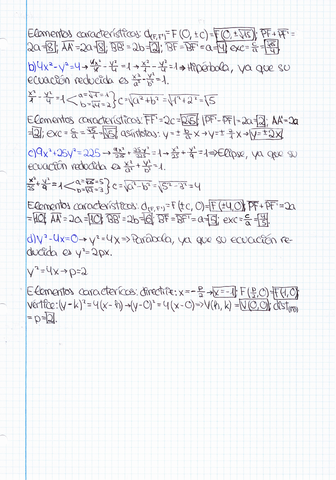 Elementos característicos: d(F,F')=F(0,±c)=F(0,±√15); PF+PF'=
2a=8; AA'=2a=8; BB'=2b=2; BF=BF'=a=4; exc=c/a=√15/4.
b) 4x²-y²=4→4x²/4-y²/4=1→x²/1-y²/4=1⇒Hipérbola, ya que su
ecuación reducida es x²/a²-y²/b²=1.
x²/1-y²/4=1 a=√1=1 b=√4=2 } c=√a²+b²=√1²+2²=√5
Elementos característicos: FF'=2c=2√5; |PF-PF'|=2a=2; AA'=2a
=2; exc=c/a=√5/1=√5; asíntotas: y=±b/a x→y=±2/1 x→y=±2x.
c) 9x²+25y²=225→9x²/225+25y²/225=1→x²/25+y²/9=1⇒Elipse, ya que su
ecuación reducida es x²/a²+y²/b²=1.
x²/25+y²/9=1 a=√25=5 b=√9=3 } c=√a²-b²=√5²-3²=4
Elementos característicos: d(F,F')=F(±c,0)=F(±4,0); PF+PF'=2a
=10; AA'=2a=10; BB'=2b=6; BF=BF'=a=5; exc=c/a=4/5.
d) y²-4x=0→y²=4x⇒Parábola, ya que su ecuación re-
ducida es y²=2px.
y²=4x→p=2
Elementos característicos: directriz: x=-p/2→x=-1; F(p/2,0)=F(1,0);
vértice: (y-k)²=4(x-h)→(y-0)²=4(x-0)⇒V(h,k)=V(0,0); dist
=p=2.